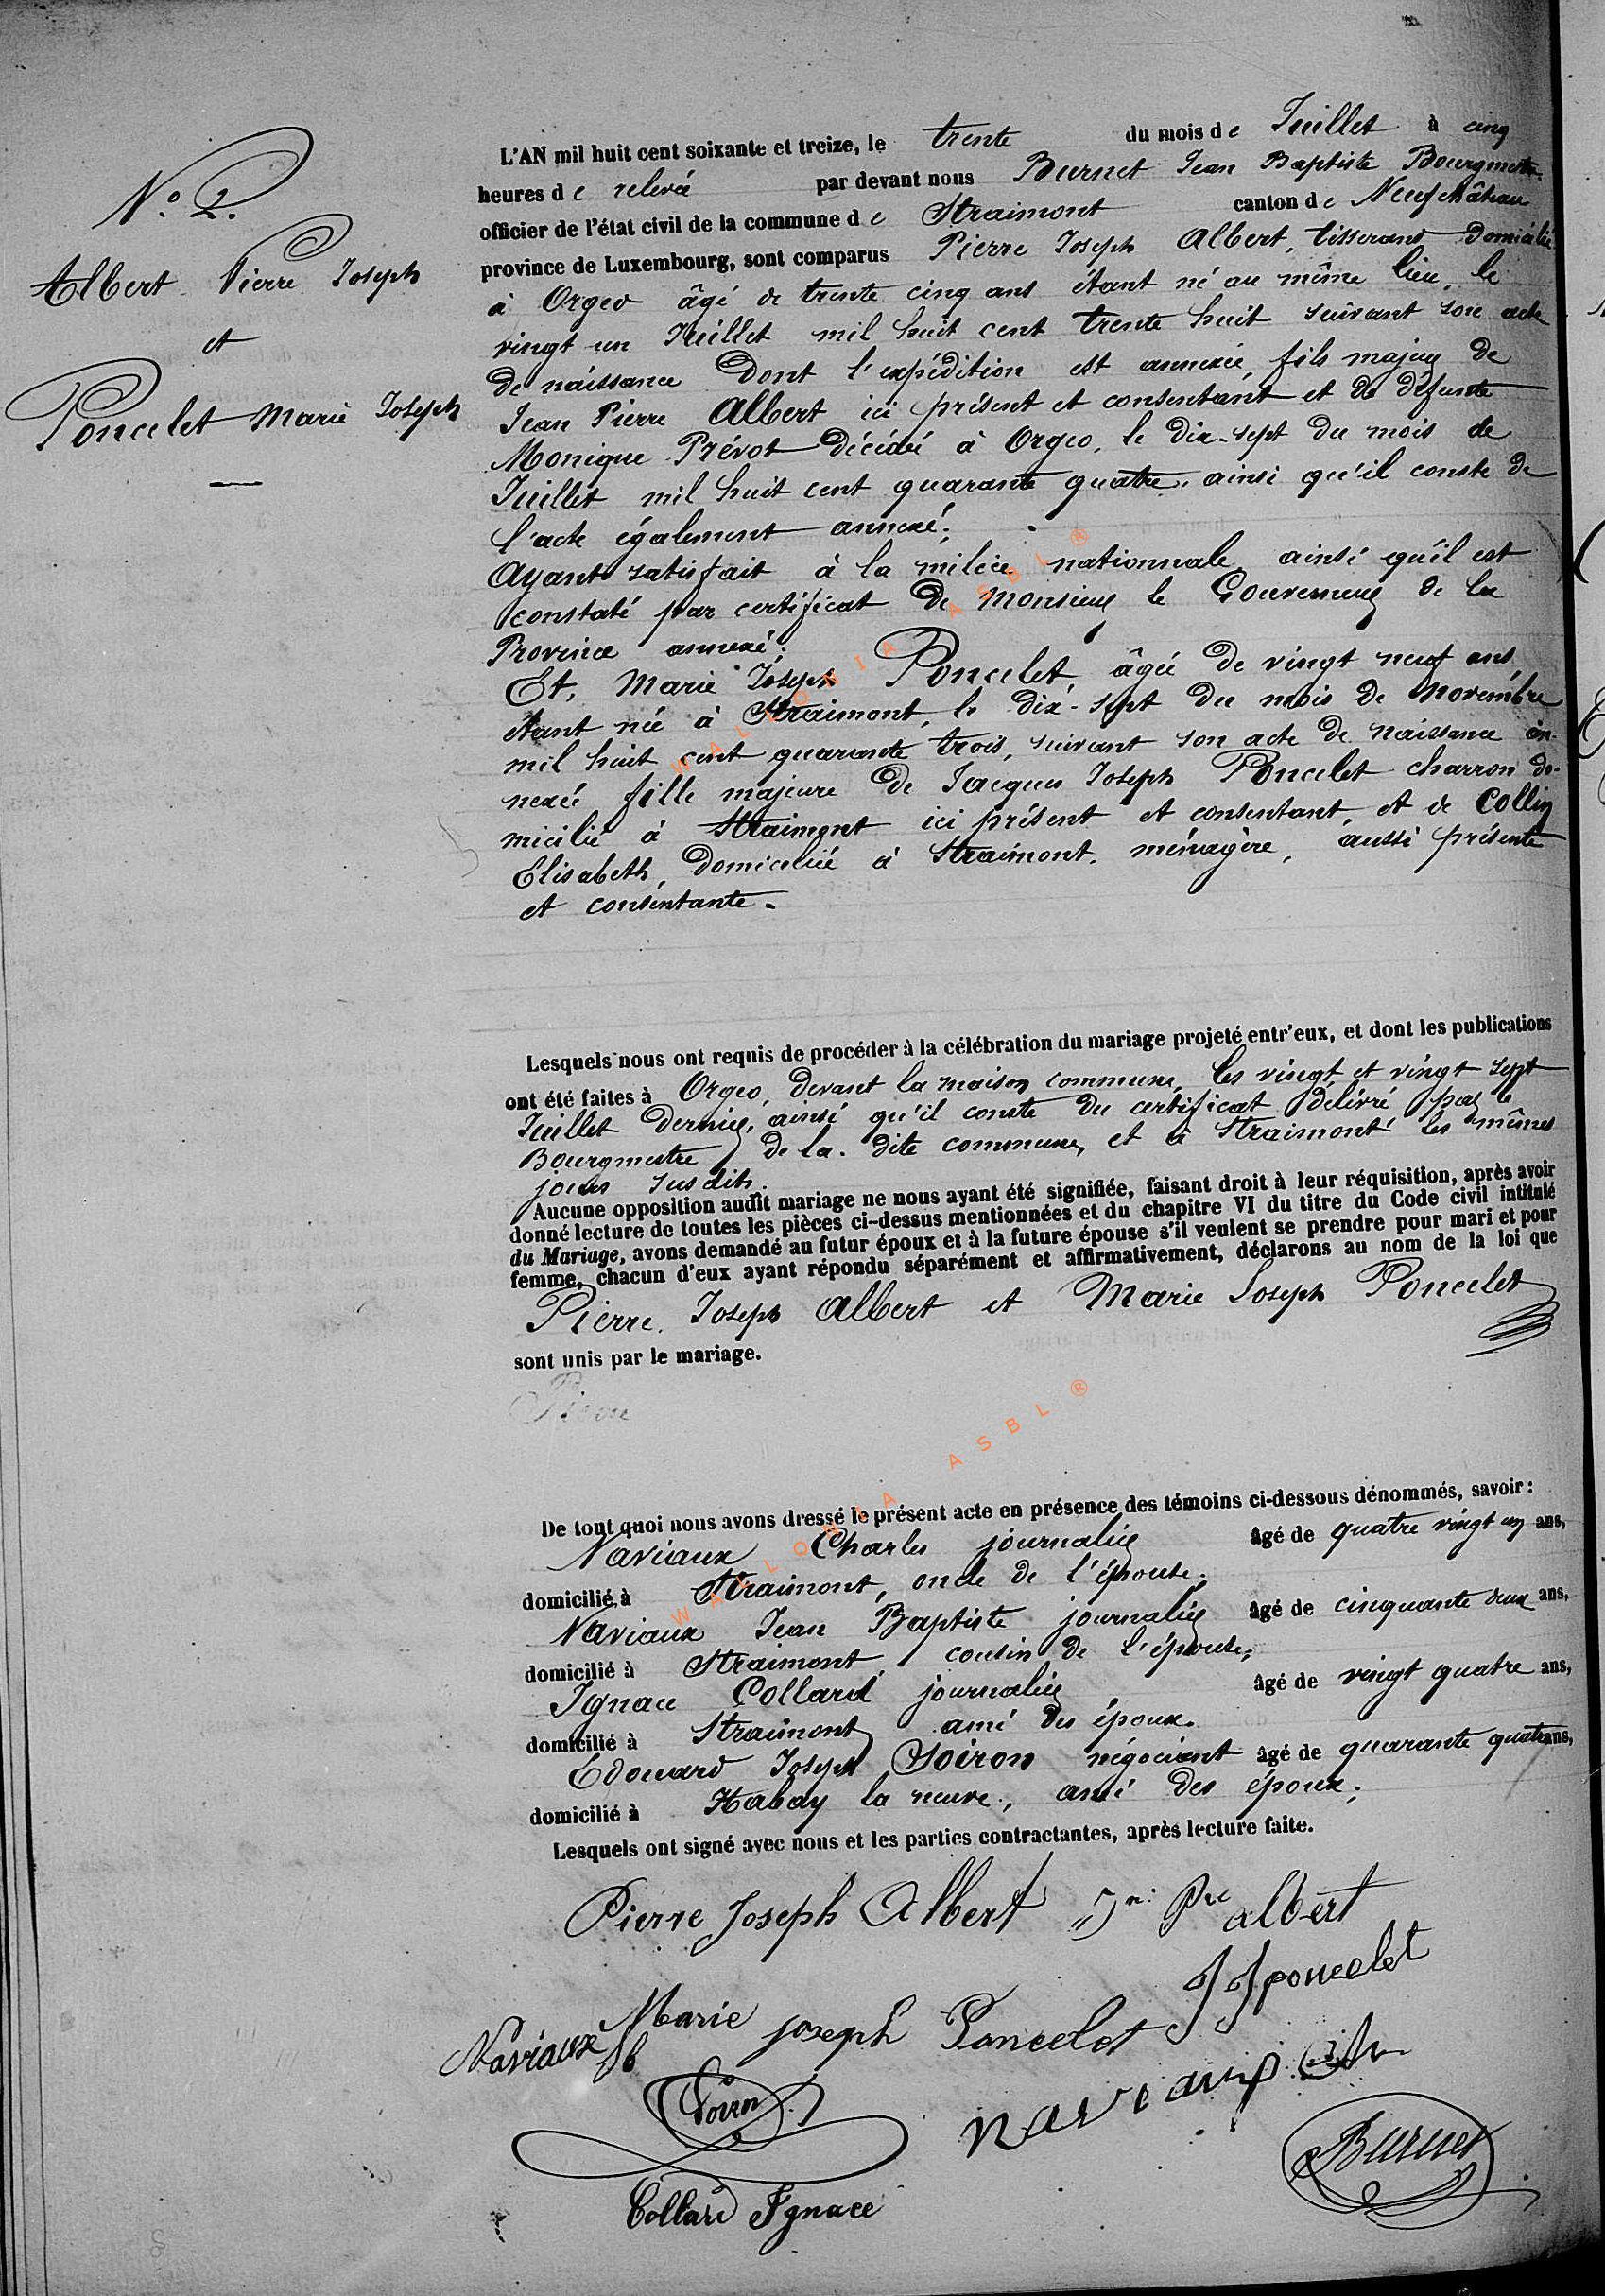 N.° 2.
Albert Pierre Joseph
et
Poncelet Marie Joseph
L'AN mil huit cent soixante et treize, le trente du mois de Juillet à cinq
heures de relevée par devant nous Burnet Jean Baptiste Bourgmestre
officier de l'état civil de la commune de Straimont canton de Neufchâteau
province de Luxembourg, sont comparus Pierre Joseph Albert, tisserand domicilié
à Orgeo âgé de trente cinq ans étant né au même lieu, le
vingt un Juillet mil huit cent trente huit suivant son acte
de naissance dont l'expédition est annexée, fils majeur de
Jean Pierre Albert ici présent et consentant et de défunte
Monique Prévot décédée à Orgeo, le dix-sept du mois de
Juillet mil huit cent quarante quatre, ainsi qu'il conste de
l'acte également annexé;
Ayant satisfait à la milice nationnale ainsi qu'il est
constaté par certificat de Monsieur le Gouverneur de la
Province annexé;
Et, Marie Joseph Poncelet, âgée de vingt neuf ans,
étant née à Straimont, le dix-sept du mois de novembre
mil huit cent quarante trois, suivant son acte de naissance an-
nexée fille majeure de Jacques Joseph Poncelet charron do-
micilié à Straimont ici présent et consentant, et de Collin
Elisabeth, domiciliée à Straimont, ménagère, aussi présente
et consentante.
Lesquels nous ont requis de procéder à la célébration du mariage projeté entr'eux, et dont les publications
ont été faites à Orgeo, devant la maison commune, les vingt et vingt sept
Juillet dernier, ainsi qu'il conste du certificat délivré par le
Bourgmestre de la dite commune, et à Straimont les mêmes
jours susdits.
Aucune opposition audit mariage ne nous ayant été signifiée, faisant droit à leur réquisition, après avoir
donné lecture de toutes les pièces ci-dessus mentionnées et du chapitre VI du titre du Code civil intitulé
du Mariage, avons demandé au futur époux et à la future épouse s'il veulent se prendre pour mari et pour
femme, chacun d'eux ayant répondu séparément et affirmativement, déclarons au nom de la loi que
Pierre Joseph Albert et Marie Joseph Poncelet
sont unis par le mariage.
De tout quoi nous avons dressé le présent acte en présence des témoins ci-dessous dénommés, savoir:
Naviaux Charles journalier âgé de quatre vingt un ans,
domicilié à Straimont, oncle de l'épouse;
Naviaux Jean Baptiste journalier âgé de cinquante deux ans,
domicilié à Straimont, cousin de l'épouse;
Ignace Collard journalier âgé de vingt quatre ans,
domicilié à Straimont, ami des époux.
Edouard Joseph Soiron négociant âgé de quarante quatre ans,
domicilié à Habay la neuve, ami des époux;
Lesquels ont signé avec nous et les parties contractantes, après lecture faite.
Pierre Joseph Albert Jn Pre albert
JJ poncelet
Marie joseph Poncelet
Naviaux Jb
Soiron
naviaux Ch
Burnet
Collard Ignace
WALLONIA ASBL ®
WALLONIA ASBL ®